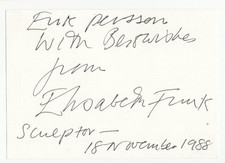 Erik Persson
With Best wishes
from
Elisabeth Frink
Sculptor —
18 November 1988